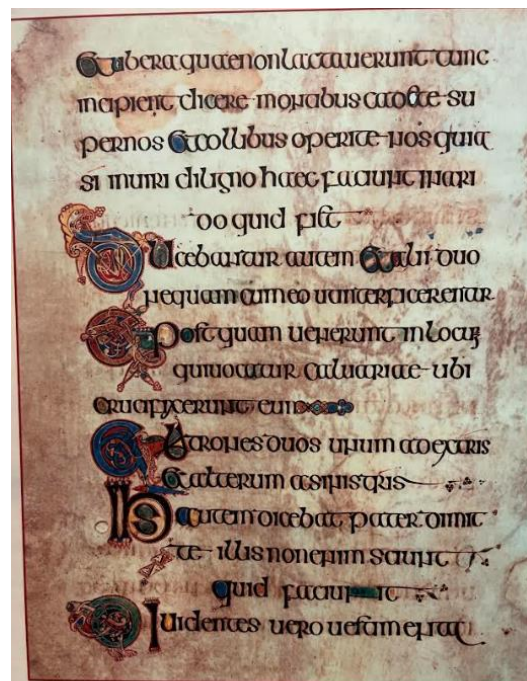 Et ubera quae non lactauerunt tunc
incipient dicere montibus cadite su
per nos Et collibus operite nos quia
si in uiridi ligno haec faciunt in ari
do quid fiet
Ducebantur autem Et alii duo
nequam cum eo ut interficerentur
Et post quam uenerunt in locum
qui uocatur caluariae ubi
crucifixerunt eum
Et latrones duos unum a dextris
Et alterum a sinistris
Ihs autem dicebat pater dimit
te illis non enim sciunt
quid faciunt
Diuidentes uero uestimenta